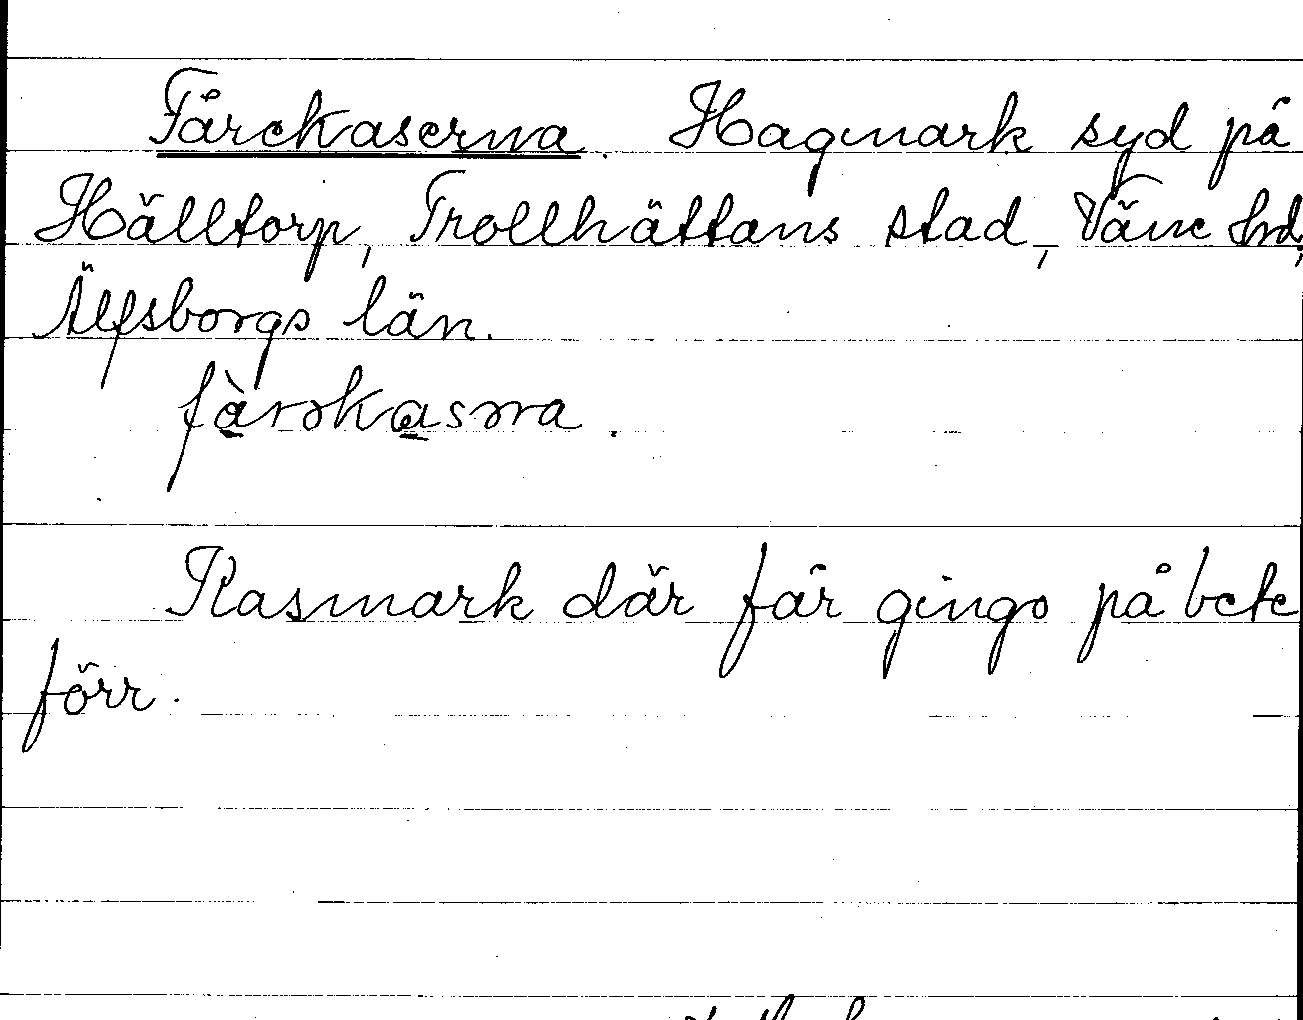 Fårekaserna. Hagmark syd på
Hälltorp, Trollhättans stad, Väne hrd,
Älfsborgs län.
fàrəkasəra.
Rasmark där får gingo på bete
förr.